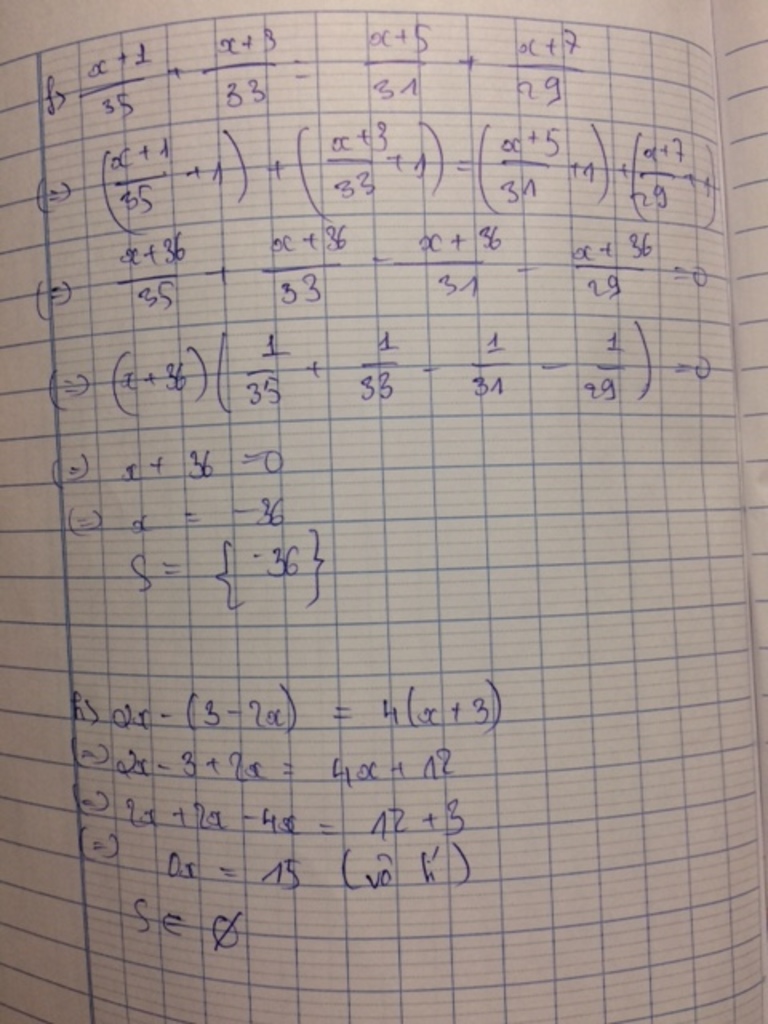 f) (x+1)/35 + (x+3)/33 = (x+5)/31 + (x+7)/29
(=) ((x+1)/35 + 1) + ((x+3)/33 + 1) = ((x+5)/31 + 1) + ((x+7)/29 + 1)
(=) (x+36)/35 + (x+36)/33 - (x+36)/31 - (x+36)/29 = 0
(=) (x+36) (1/35 + 1/33 - 1/31 - 1/29) = 0
(=) x + 36 = 0
(=) x = -36
S = {-36}
h) 2x - (3 - 2x) = 4(x+3)
(=) 2x - 3 + 2x = 4x + 12
(=) 2x + 2x - 4x = 12 + 3
(=) 0x = 15 (vô lí)
S ∈ ∅